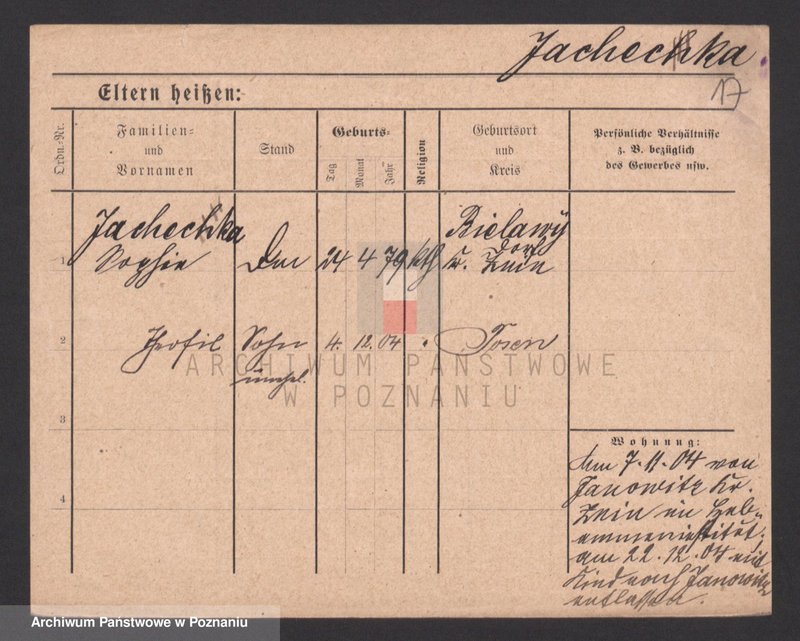 Jachechka.
17
Eltern heißen:
Ordn.-Nr.
Familien-
und
Vornamen
Stand
Geburts-
Tag
Monat
Jahr
Religion
Geburtsort
und
Kreis
Persönliche Verhältnisse
z. B. bezüglich
des Gewerbes usw.
Jachechka
Bielawy
Dorf
1 Sophie 24 4 79 kth Kr. Znin
2 Theofil Sohn 4. 12. 04 Posen
unehel.
ARCHIWUM PAŃSTWOWE
W POZNANIU
3
4
Wohnung:
7.11.04 von
Janowitz Kr.
Znin im Heb-
ammeninstitut.
am 22.12.04 mit
Kind nach Janowitz
entlassen.
Archiwum Państwowe w Poznaniu